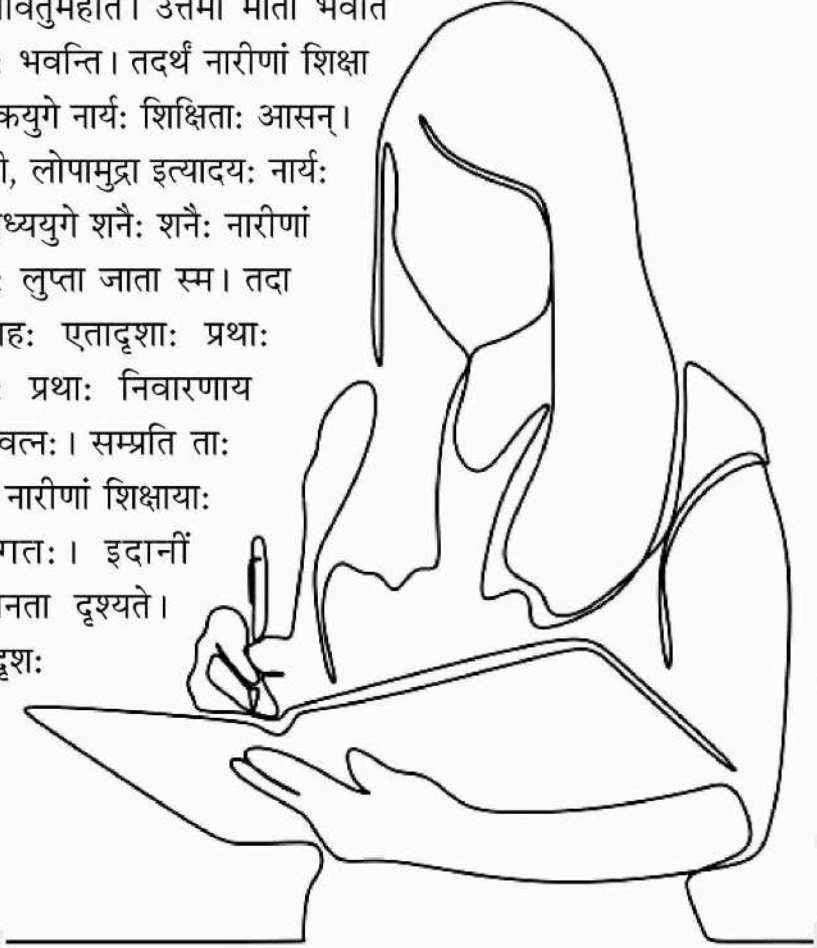 उत्तमा माता भवति
भवन्ति। तदर्थं नारीणां शिक्षा
नार्यः शिक्षिताः आसन्।
लोपामुद्रा इत्यादयः नार्यः
शनैः शनैः नारीणां
लुप्ता जाता स्म। तदा
एतादृशाः प्रथाः
प्रथाः निवारणाय
सम्प्रति ताः
नारीणां शिक्षायाः
इदानीं
दृश्यते।